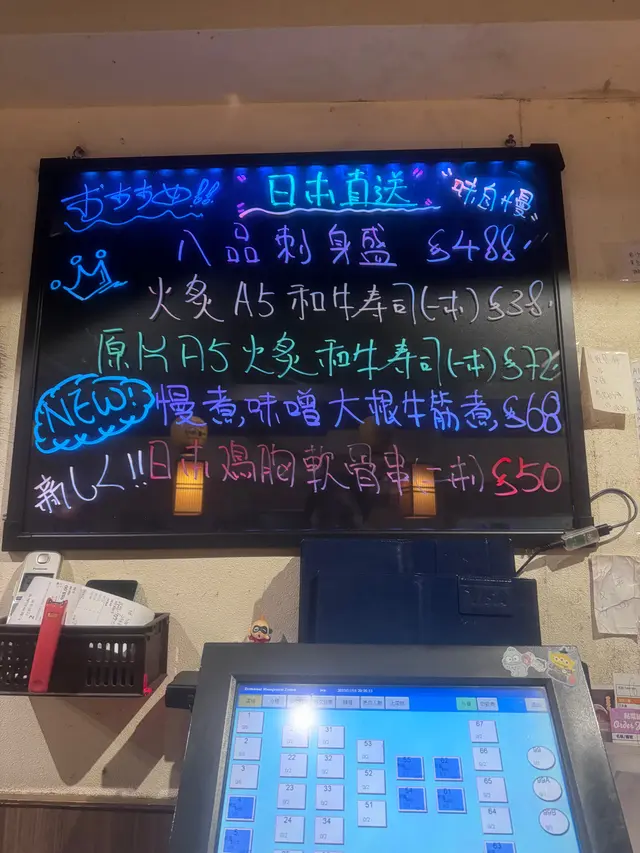 おすすめ!! 日本直送 "味自慢"
八品刺身盛 $488
火炙A5和牛寿司(一本) $38
原片A5火炙和牛寿司(一本) $72
NEW! 慢煮味噌大根牛筋煮 $68
新しく!! 日本鶏胸軟骨串(一本) $50